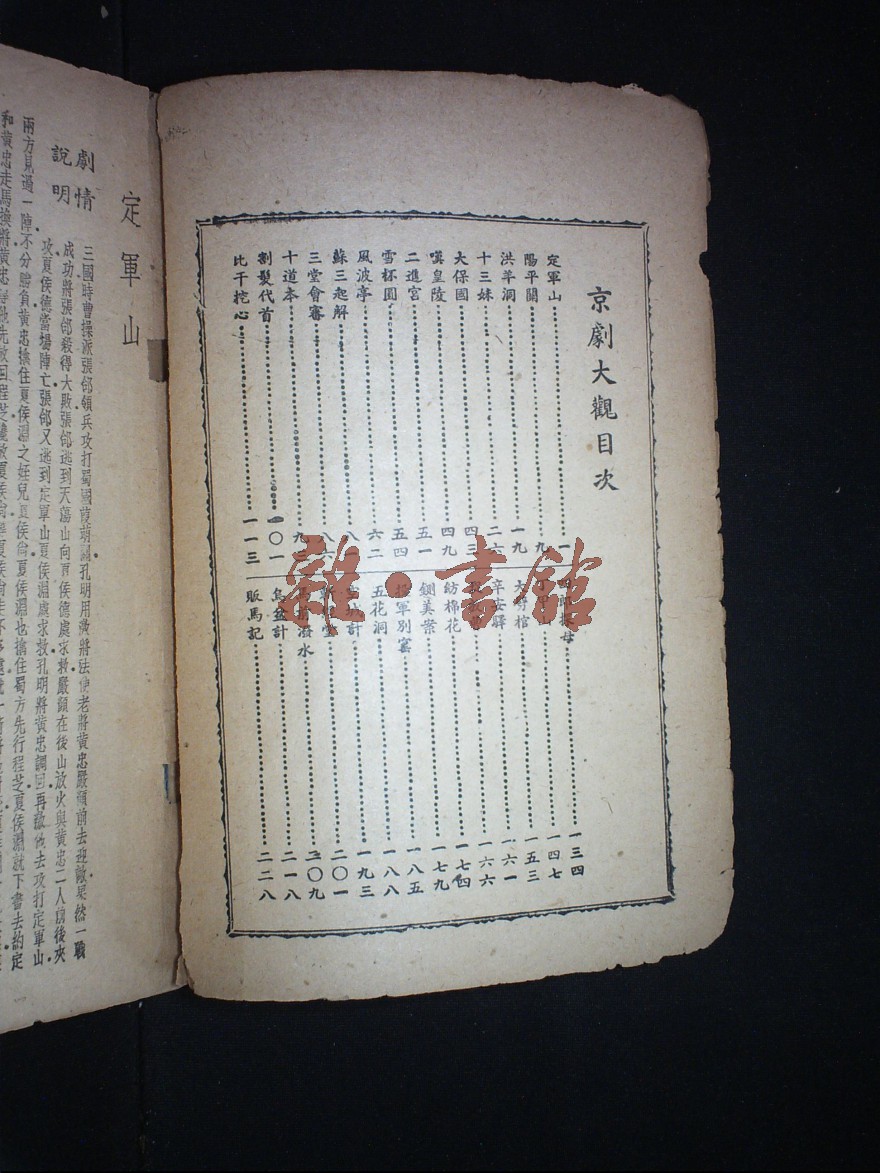 京劇大觀目次
定軍山 一
陽平關 九
洪羊洞 一九
十三妹 二六
大保國 四三
嘆皇陵 四九
二進宮 五一
雪杯圓 五四
風波亭 六二
蘇三起解 八
三堂會審 八六
十道本 九
割髮代首 一〇一
比干挖心 一一三
探母 一三四
一四七
大劈棺 一五三
辛安驛 一六一
一六六
紡棉花 一七四
鍘美案 一七九
軍別窰 一八五
五花洞 一八八
城計 一九三
堂 二〇一
馬前潑水 二〇九
烏盆計 二一八
販馬記 二二八
雜·書館
定軍山
劇情說明
三國時曹操派張郃領兵攻打蜀國葭萌關孔明用激將法使老將黃忠嚴顏前去迎敵果然一戰
成功將張郃殺得大敗張郃逃到天蕩山向夏侯德處求救嚴顏在後山放火與黃忠二人前後夾
攻夏侯德當場陣亡張郃又逃到定軍山夏侯淵處求救孔明將黃忠調回再激他去攻打定軍山
兩方見過一陣不分勝負黃忠擒住夏侯淵之姪兒夏侯尚夏侯淵也擒住蜀方先行程芝夏侯淵就下書去約定
和黃忠走馬換將黃忠